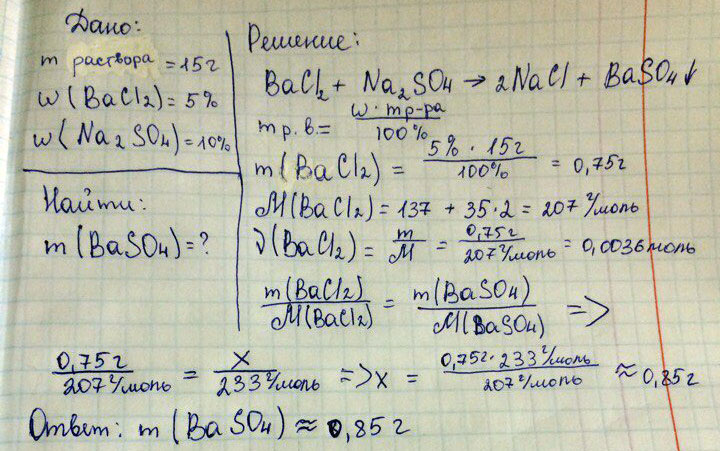 Дано:
m раствора = 15г
ω (BaCl2) = 5%
ω (Na2SO4) = 10%
Найти:
m (BaSO4) = ?
Решение:
BaCl2 + Na2SO4 → 2NaCl + BaSO4↓
m р.в. = ω · m р-ра / 100%
m (BaCl2) = 5% · 15г / 100% = 0,75г
M (BaCl2) = 137 + 35·2 = 207 г/моль
ν (BaCl2) = m / M = 0,75г / 207 г/моль = 0,0036 моль
m (BaCl2) / M (BaCl2) = m (BaSO4) / M (BaSO4) =>
0,75г / 207 г/моль = X / 233 г/моль => X = 0,75г · 233 г/моль / 207 г/моль ≈ 0,85г
Ответ: m (BaSO4) ≈ 0,85г